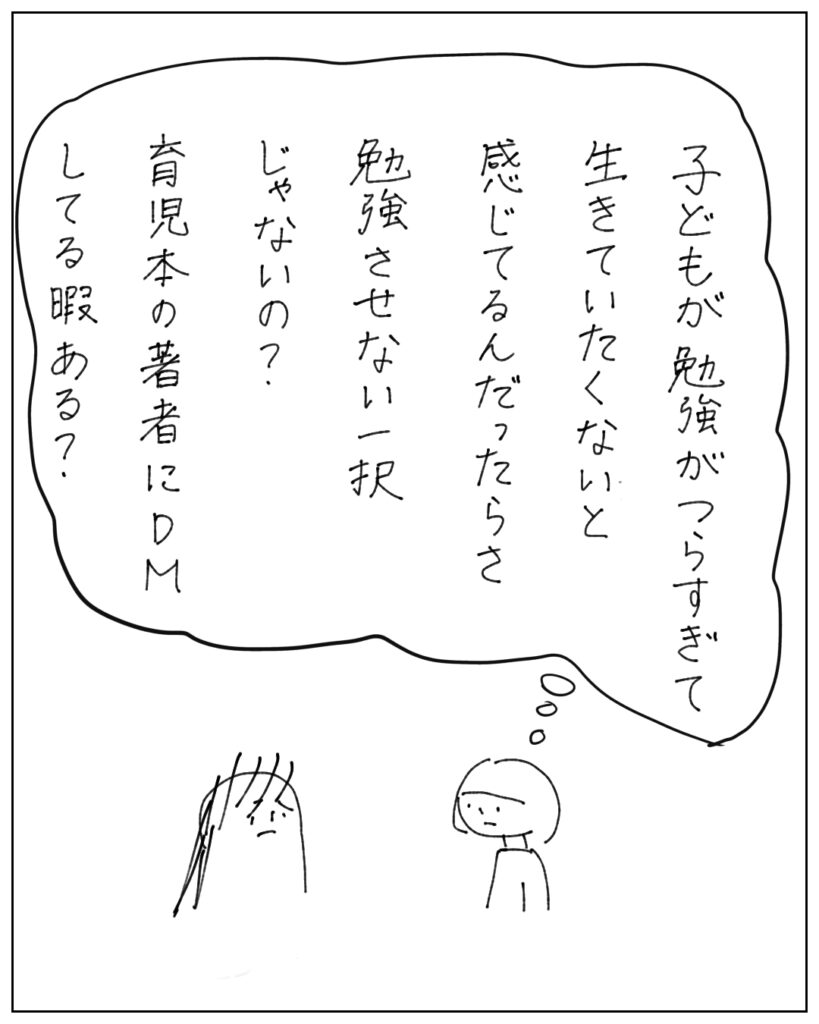 子どもが勉強がつらすぎて
生きていたくないと
感じてるんだったらさ
勉強させない一択
じゃないの?
育児本の著者にDM
してる暇ある?